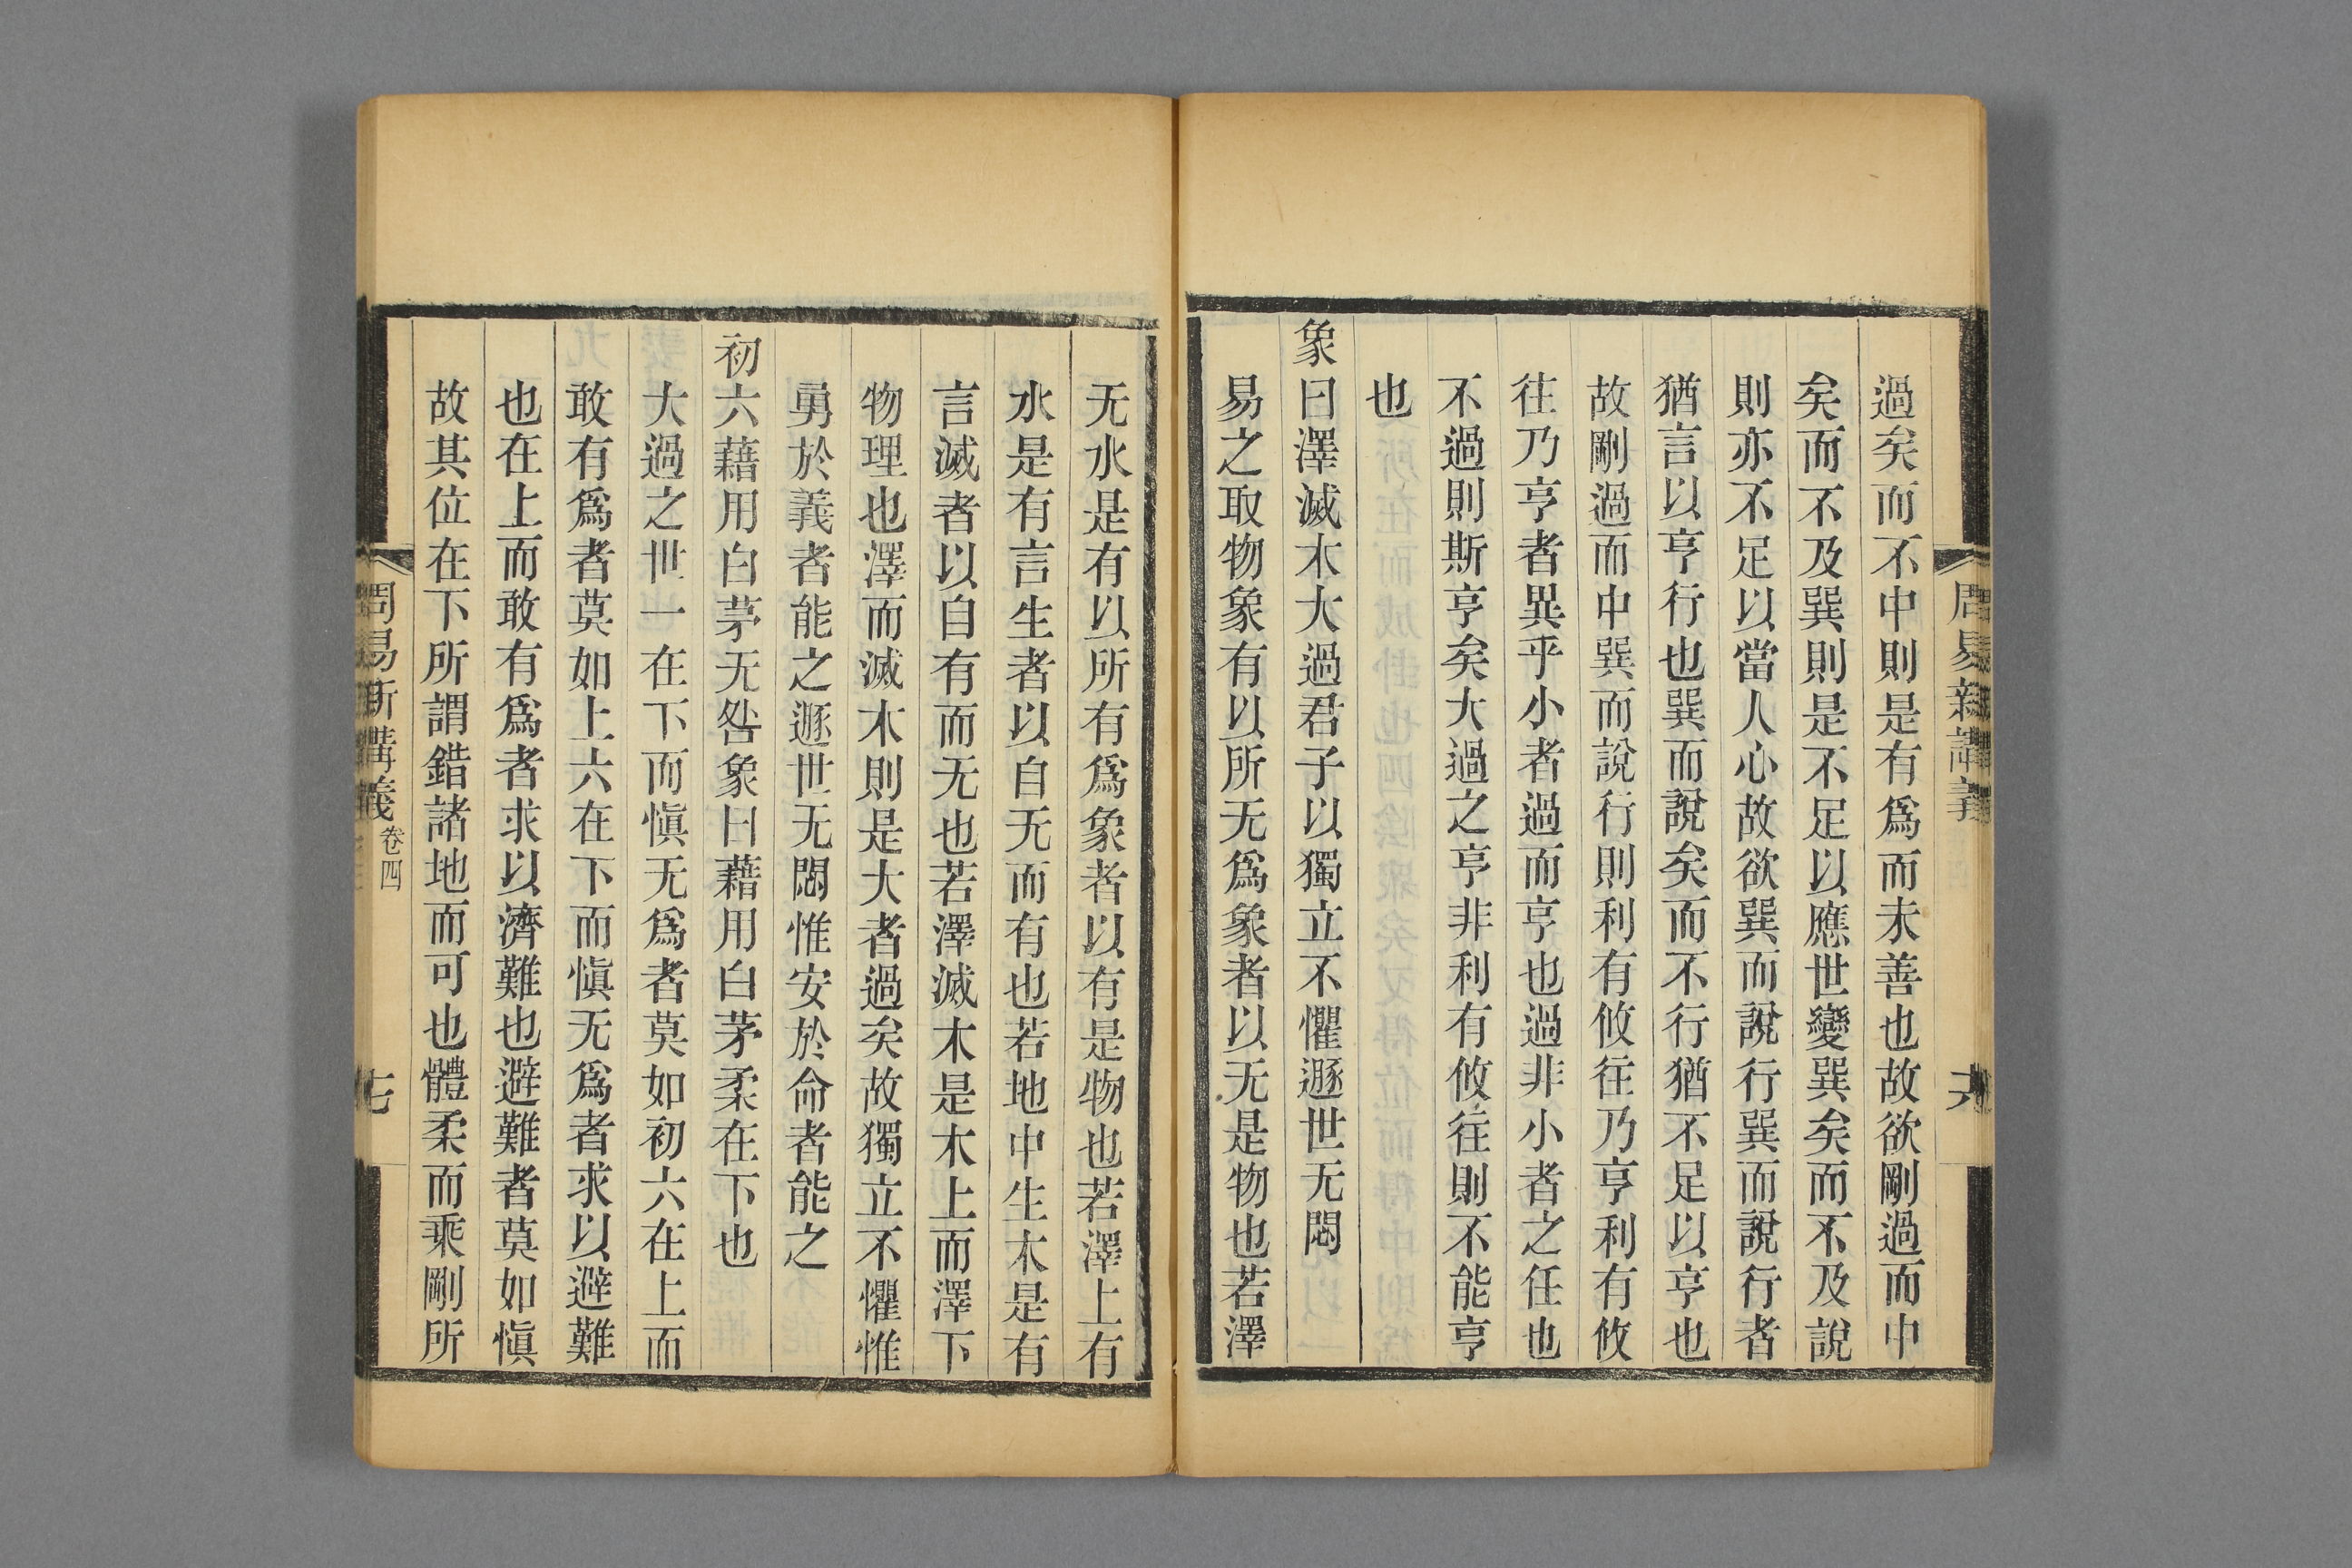 周易新講義
六
過矣而不中則是有爲而未善也故欲剛過而中
矣而不及巽則是不足以應世變巽矣而不及說
則亦不足以當人心故欲巽而說行巽而說行者
猶言以亨行也巽而說矣而不行猶不足以亨也
故剛過而中巽而說行則利有攸往乃亨利有攸
往乃亨者異乎小者過而亨也過非小者之任也
不過則斯亨矣大過之亨非利有攸往則不能亨
也
象曰澤滅木大過君子以獨立不懼遯世无悶
易之取物象有以所无爲象者以无是物也若澤
无水是有以所有爲象者以有是物也若澤上有
水是有言生者以自无而有也若地中生木是有
言滅者以自有而无也若澤滅木是木上而澤下
物理也澤而滅木則是大者過矣故獨立不懼惟
勇於義者能之遯世无悶惟安於命者能之
初六藉用白茅无咎象曰藉用白茅柔在下也
大過之世一在下而愼无爲者莫如初六在上而
敢有爲者莫如上六在下而愼无爲者求以避難
也在上而敢有爲者求以濟難也避難者莫如愼
故其位在下所謂錯諸地而可也體柔而乘剛所
周易新講義 卷四
七